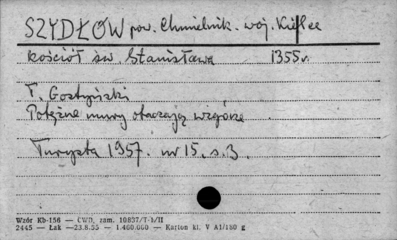 SZYDŁÓW pow. Chmielnik. woj. Kielce
kościół św. Stanisława 1355 r.
T. Gostyński
Potężne mury otaczają wzgórze
Turysta 1957. nr 15, s. 3.
Wzór Kb-156 — CWD, zam. 10837/T-1/II
2445 — Łak —23.8.55 — 1.400.000 — Karton kl. V A1/180 g